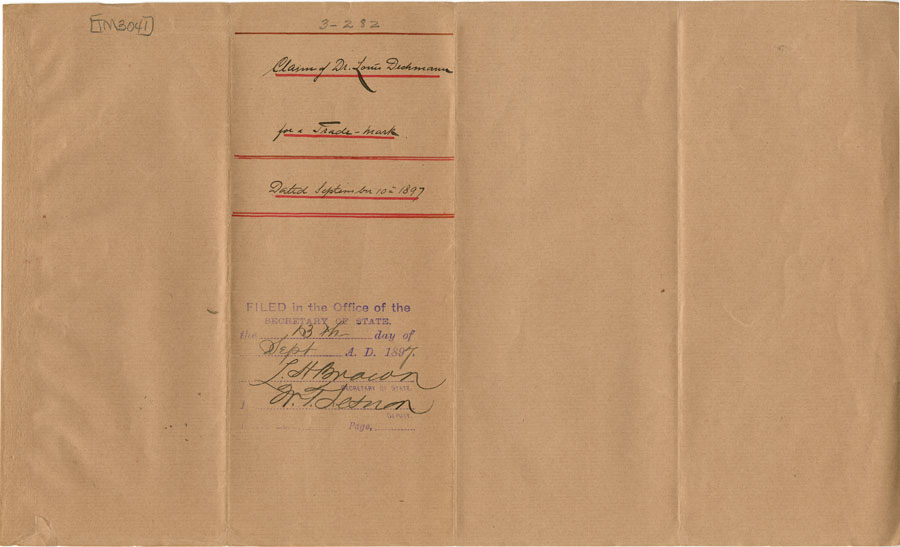 [TM3041]
3-282
Claim of Dr. Louis Dechmann
for a Trade-mark.
Dated September 10th 1897
FILED in the Office of the
SECRETARY OF STATE.
the 13th day of
Sept A. D. 1897.
L. H. Brown
SECRETARY OF STATE.
DEPUTY
Page,